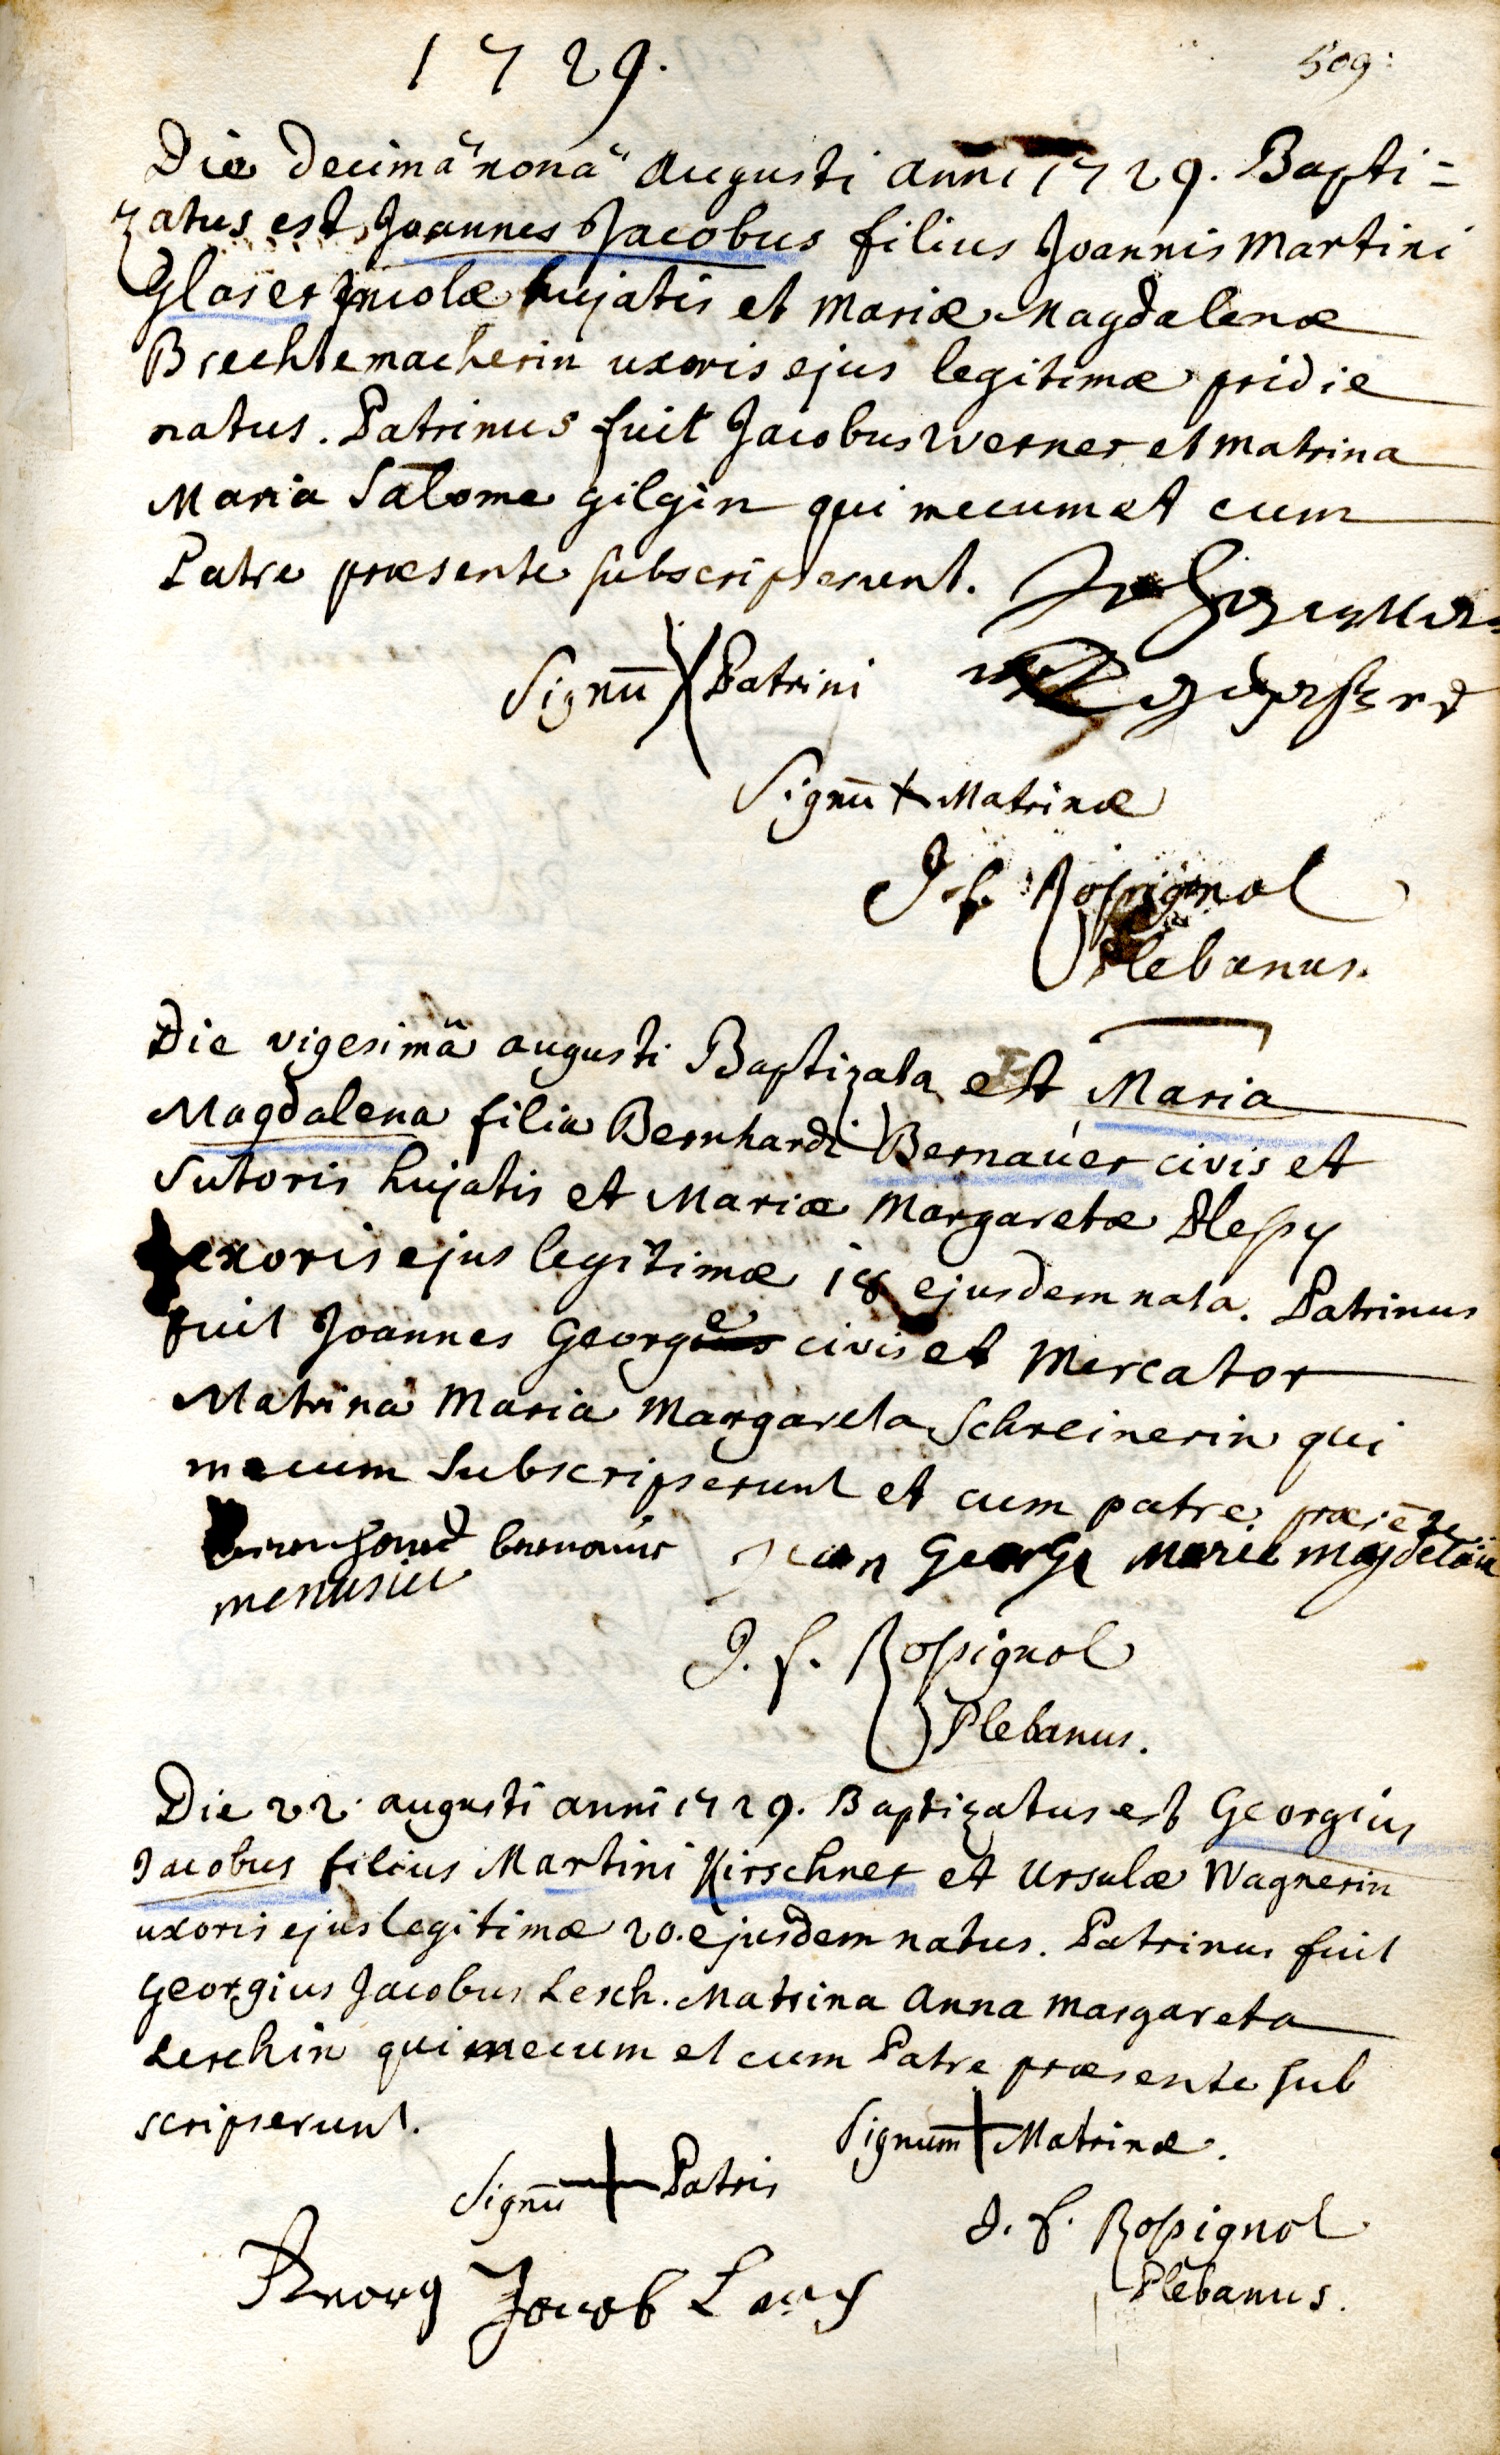 1729.
509:
Die decimâ nonâ Augusti anni 1729. Bapti=
zatus est Joannes Jacobus filius Joannis Martini
Glaser Incolæ hujatis et Mariæ Magdalenæ
Brechtemacherin uxoris ejus legitimæ pridie
natus. Patrinus fuit Jacobus Werner et Matrina
Maria Salome Gilgin qui mecum et cum
Patre præsente subscripserunt.
Signū X Patrini
Signū + Matrinæ
J. f. Roßignol
Plebanus.
Die vigesimâ augusti Baptizata est Maria
Magdalena filia Bernhardi Bernaúer civis et
Sutoris hujatis et Mariæ Margaretæ Blessy
uxoris ejus legitimæ 18 ejusdem nata. Patrinus
fuit Joannes George civis et Mercator
Matrina Maria Margareta Schreinerin qui
mecum Subscripserunt et cum patre præsēte
bernauer Jean George Marie Magdelaine
menusie
J. f. Roßignol
Plebanus.
Die 22. augusti anni 1729. Baptizatus est Georgius
Jacobus filius Martini Kirschner et Ursulæ Wagnerin
uxoris ejus legitimæ 20. ejusdem natus. Patrinus fuit
Georgius Jacobus Lesch. Matrina Anna Margareta
Leschin qui mecum et cum Patre præsente sub
scripserunt.
Signum + Matrinæ.
Signū + Patris
J. f. Roßignol
Plebanus.
Georg Jacob Lesch